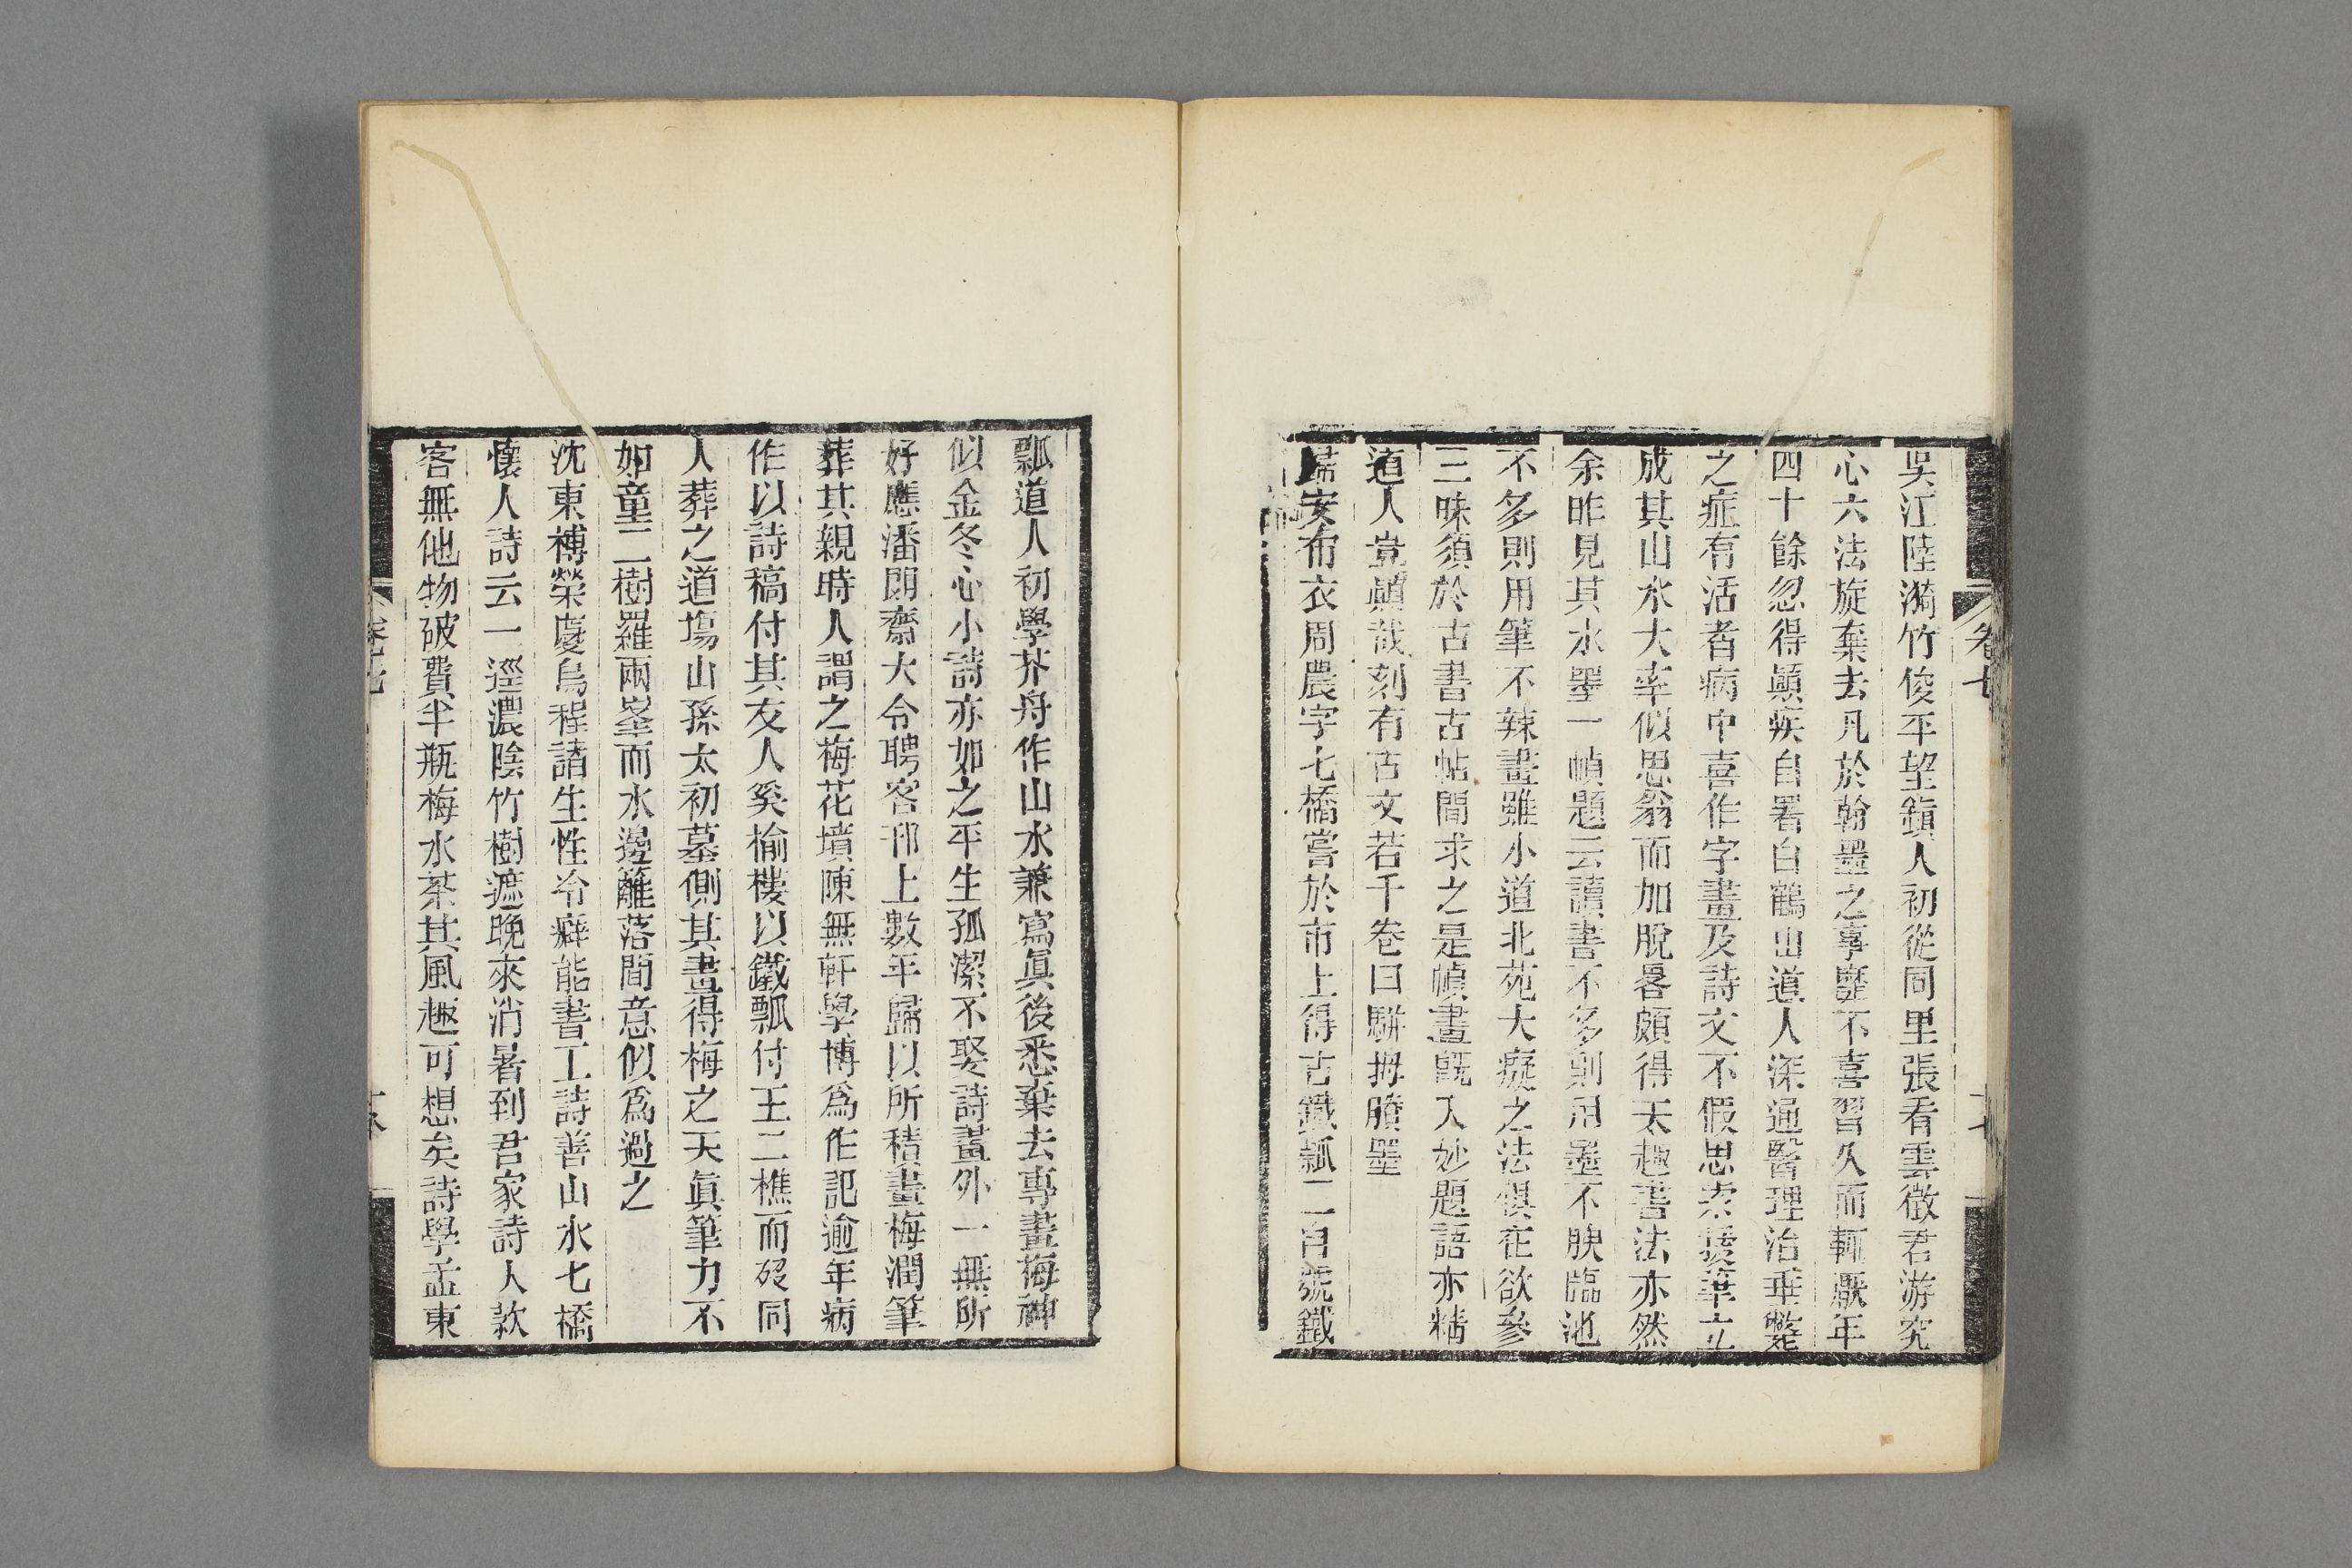 卷七
吳江陸漪竹俊平望鎮人初從同里張看雲徵君游究
心六法旋棄去凡於翰墨之事靡不喜習久而輒厭年
四十餘忽得顚疾自署白鶴山道人深通醫理治垂斃
之症有活者病中喜作字畫及詩文不假思索援筆立
成其山水大率似思翁而加脫畧頗得天趣書法亦然
余昨見其水墨一幀題云讀書不多則用墨不腴臨池
不多則用筆不辣畫雖小道北苑大癡之法俱在欲參
三昧須於古書古帖間求之是幀畫旣入妙題語亦精
道人豈顚哉刻有古文若干卷曰駢拇賸墨
瑞安布衣周農字七橋嘗於市上得古鐵瓢二自號鐵
瓢道人初學芥舟作山水兼寫眞後悉棄去專畫梅神
似金冬心小詩亦如之平生孤潔不娶詩畫外一無所
好應潘閬齋大令聘客邗上數年歸以所積畫梅潤筆
葬其親時人謂之梅花墳陳無軒學博爲作記逾年病
作以詩稿付其友人奚榆樓以鐵瓢付王二樵而歿同
人葬之道塲山孫太初墓側其畫得梅之天眞筆力不
如童二樹羅兩峯而水邊籬落間意似爲過之
沈東榑榮慶烏程諸生性冷癖能書工詩善山水七橋
懷人詩云一逕濃陰竹樹遮晚來消暑到君家詩人款
客無他物破費半瓶梅水茶其風趣可想矣詩學孟東
卷七